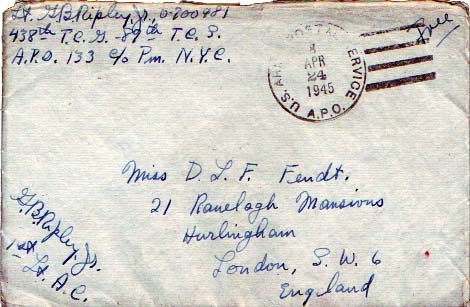 Lt. G.B. Ripley, Jr. 0-700981
438th T.C.G.-89th T.C.S.
A.P.O. 133 c/o P.m. N.Y.C.
Free
U.S. ARMY POSTAL SERVICE
APR
24
1945
A.P.O.
Miss D.L.F. Fendt.
21 Ranelagh Mansions
Hurlingham
London, S.W. 6
England
G.B. Ripley, Jr.
1st Lt. A.C.